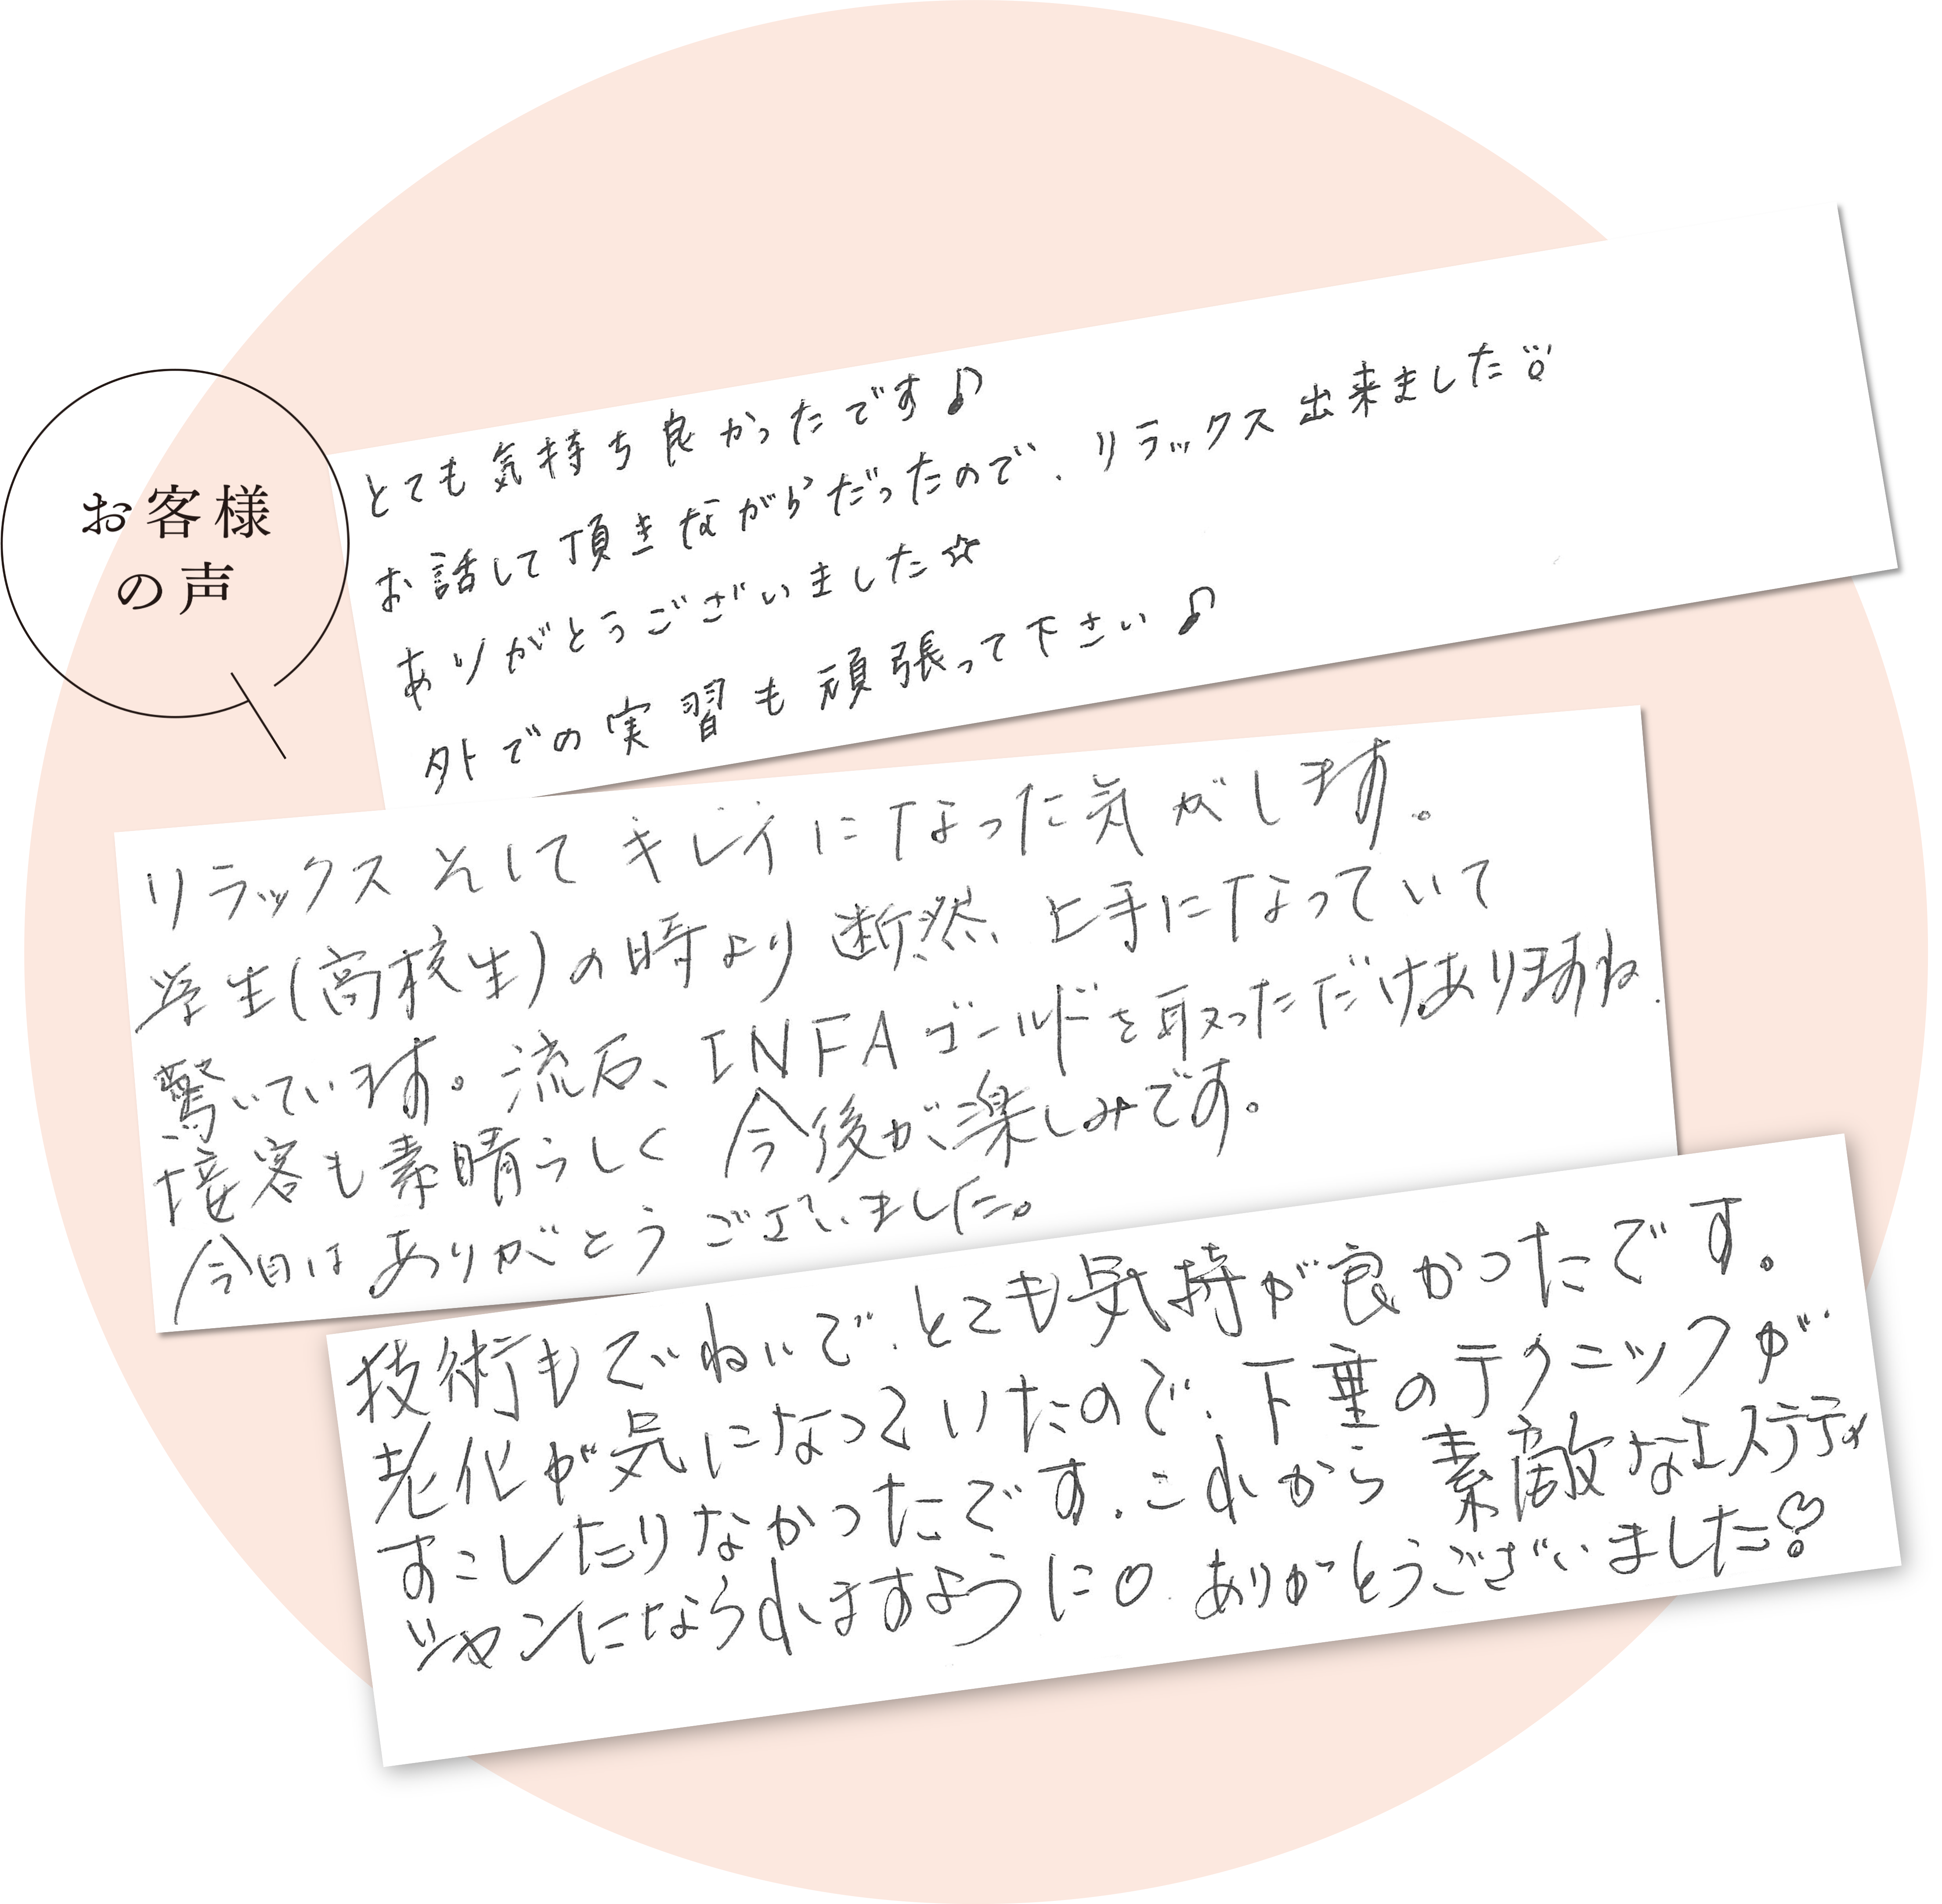 お客様
の声
とても気持ち良かったです♪
お話して頂きながらだったので、リラックス出来ました
ありがとうございました☆
外での実習も頑張って下さい♪
リラックスそしてキレイになった気がします。
学生(高校生)の時より断然、上手になっていて
驚いています。流石、INFAゴールドを取っただけありますね.
接客も素晴らしく今後が楽しみです。
今日はありがとうございました。
技術もていねいで、とても気持が良かったです。
老化が気になっていたので、下垂のテクニックが
すこしたりなかったです.これから素敵なエステティ
シャンになられますように○.ありがとうございました♡